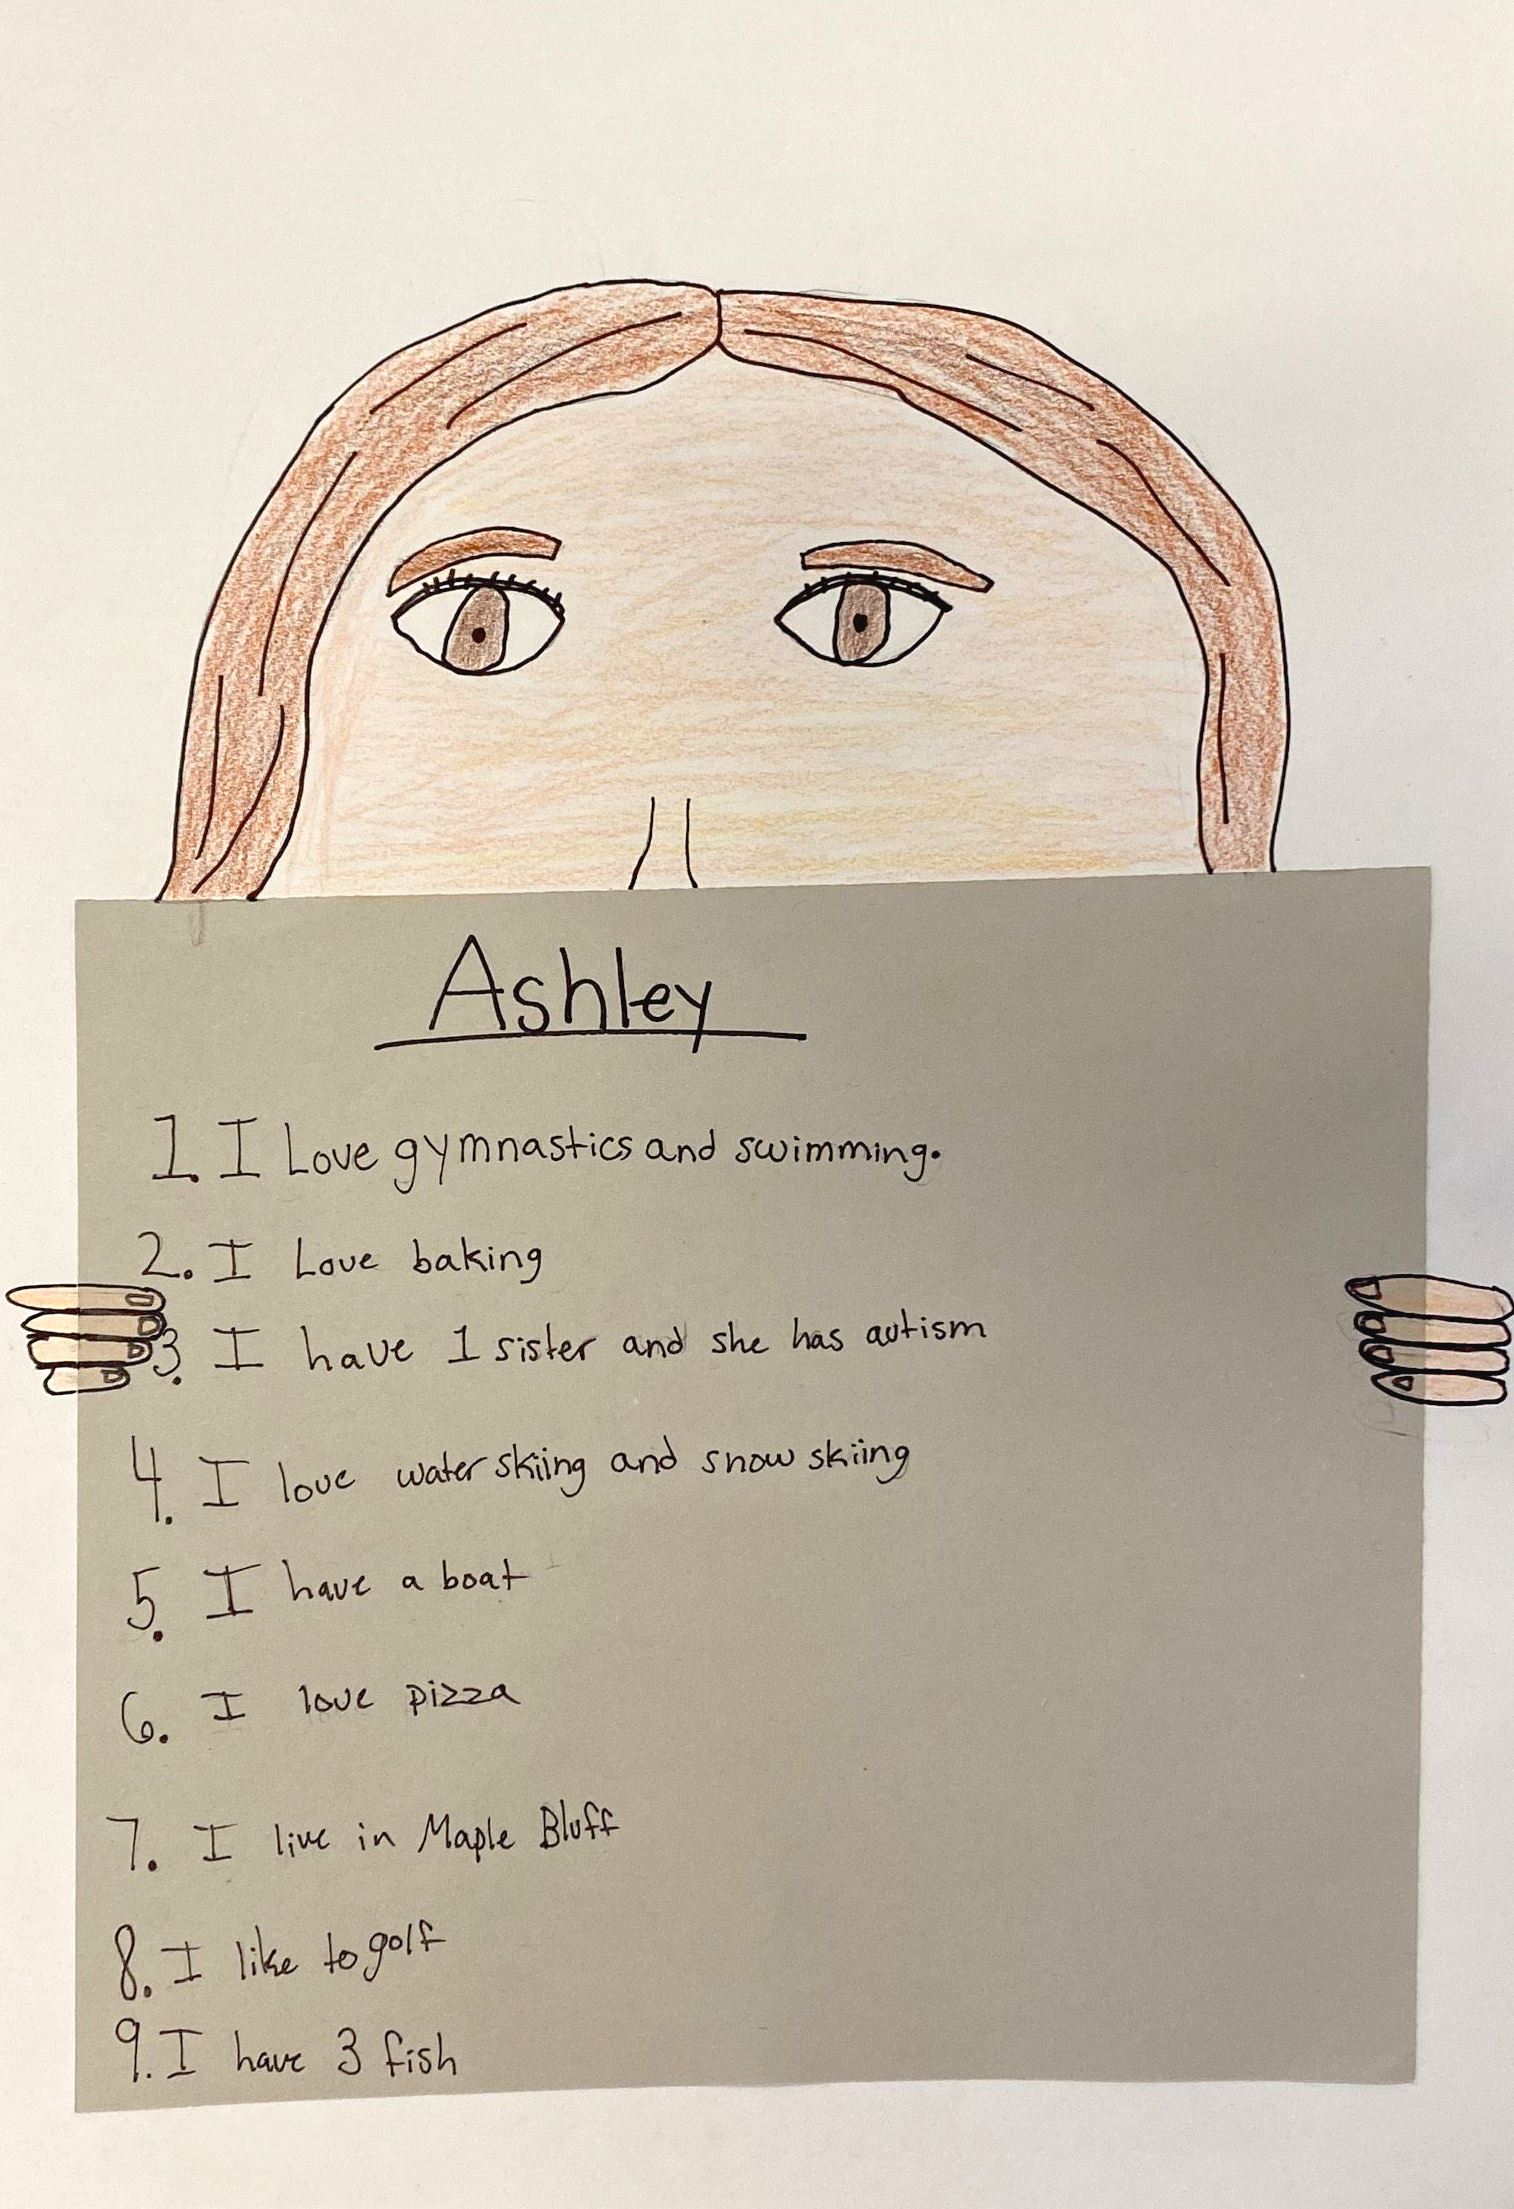 Ashley
1. I Love gymnastics and swimming.
2. I Love baking
3. I have 1 sister and she has autism
4. I love water skiing and snow skiing
5. I have a boat
6. I love pizza
7. I live in Maple Bluff
8. I like to golf
9. I have 3 fish